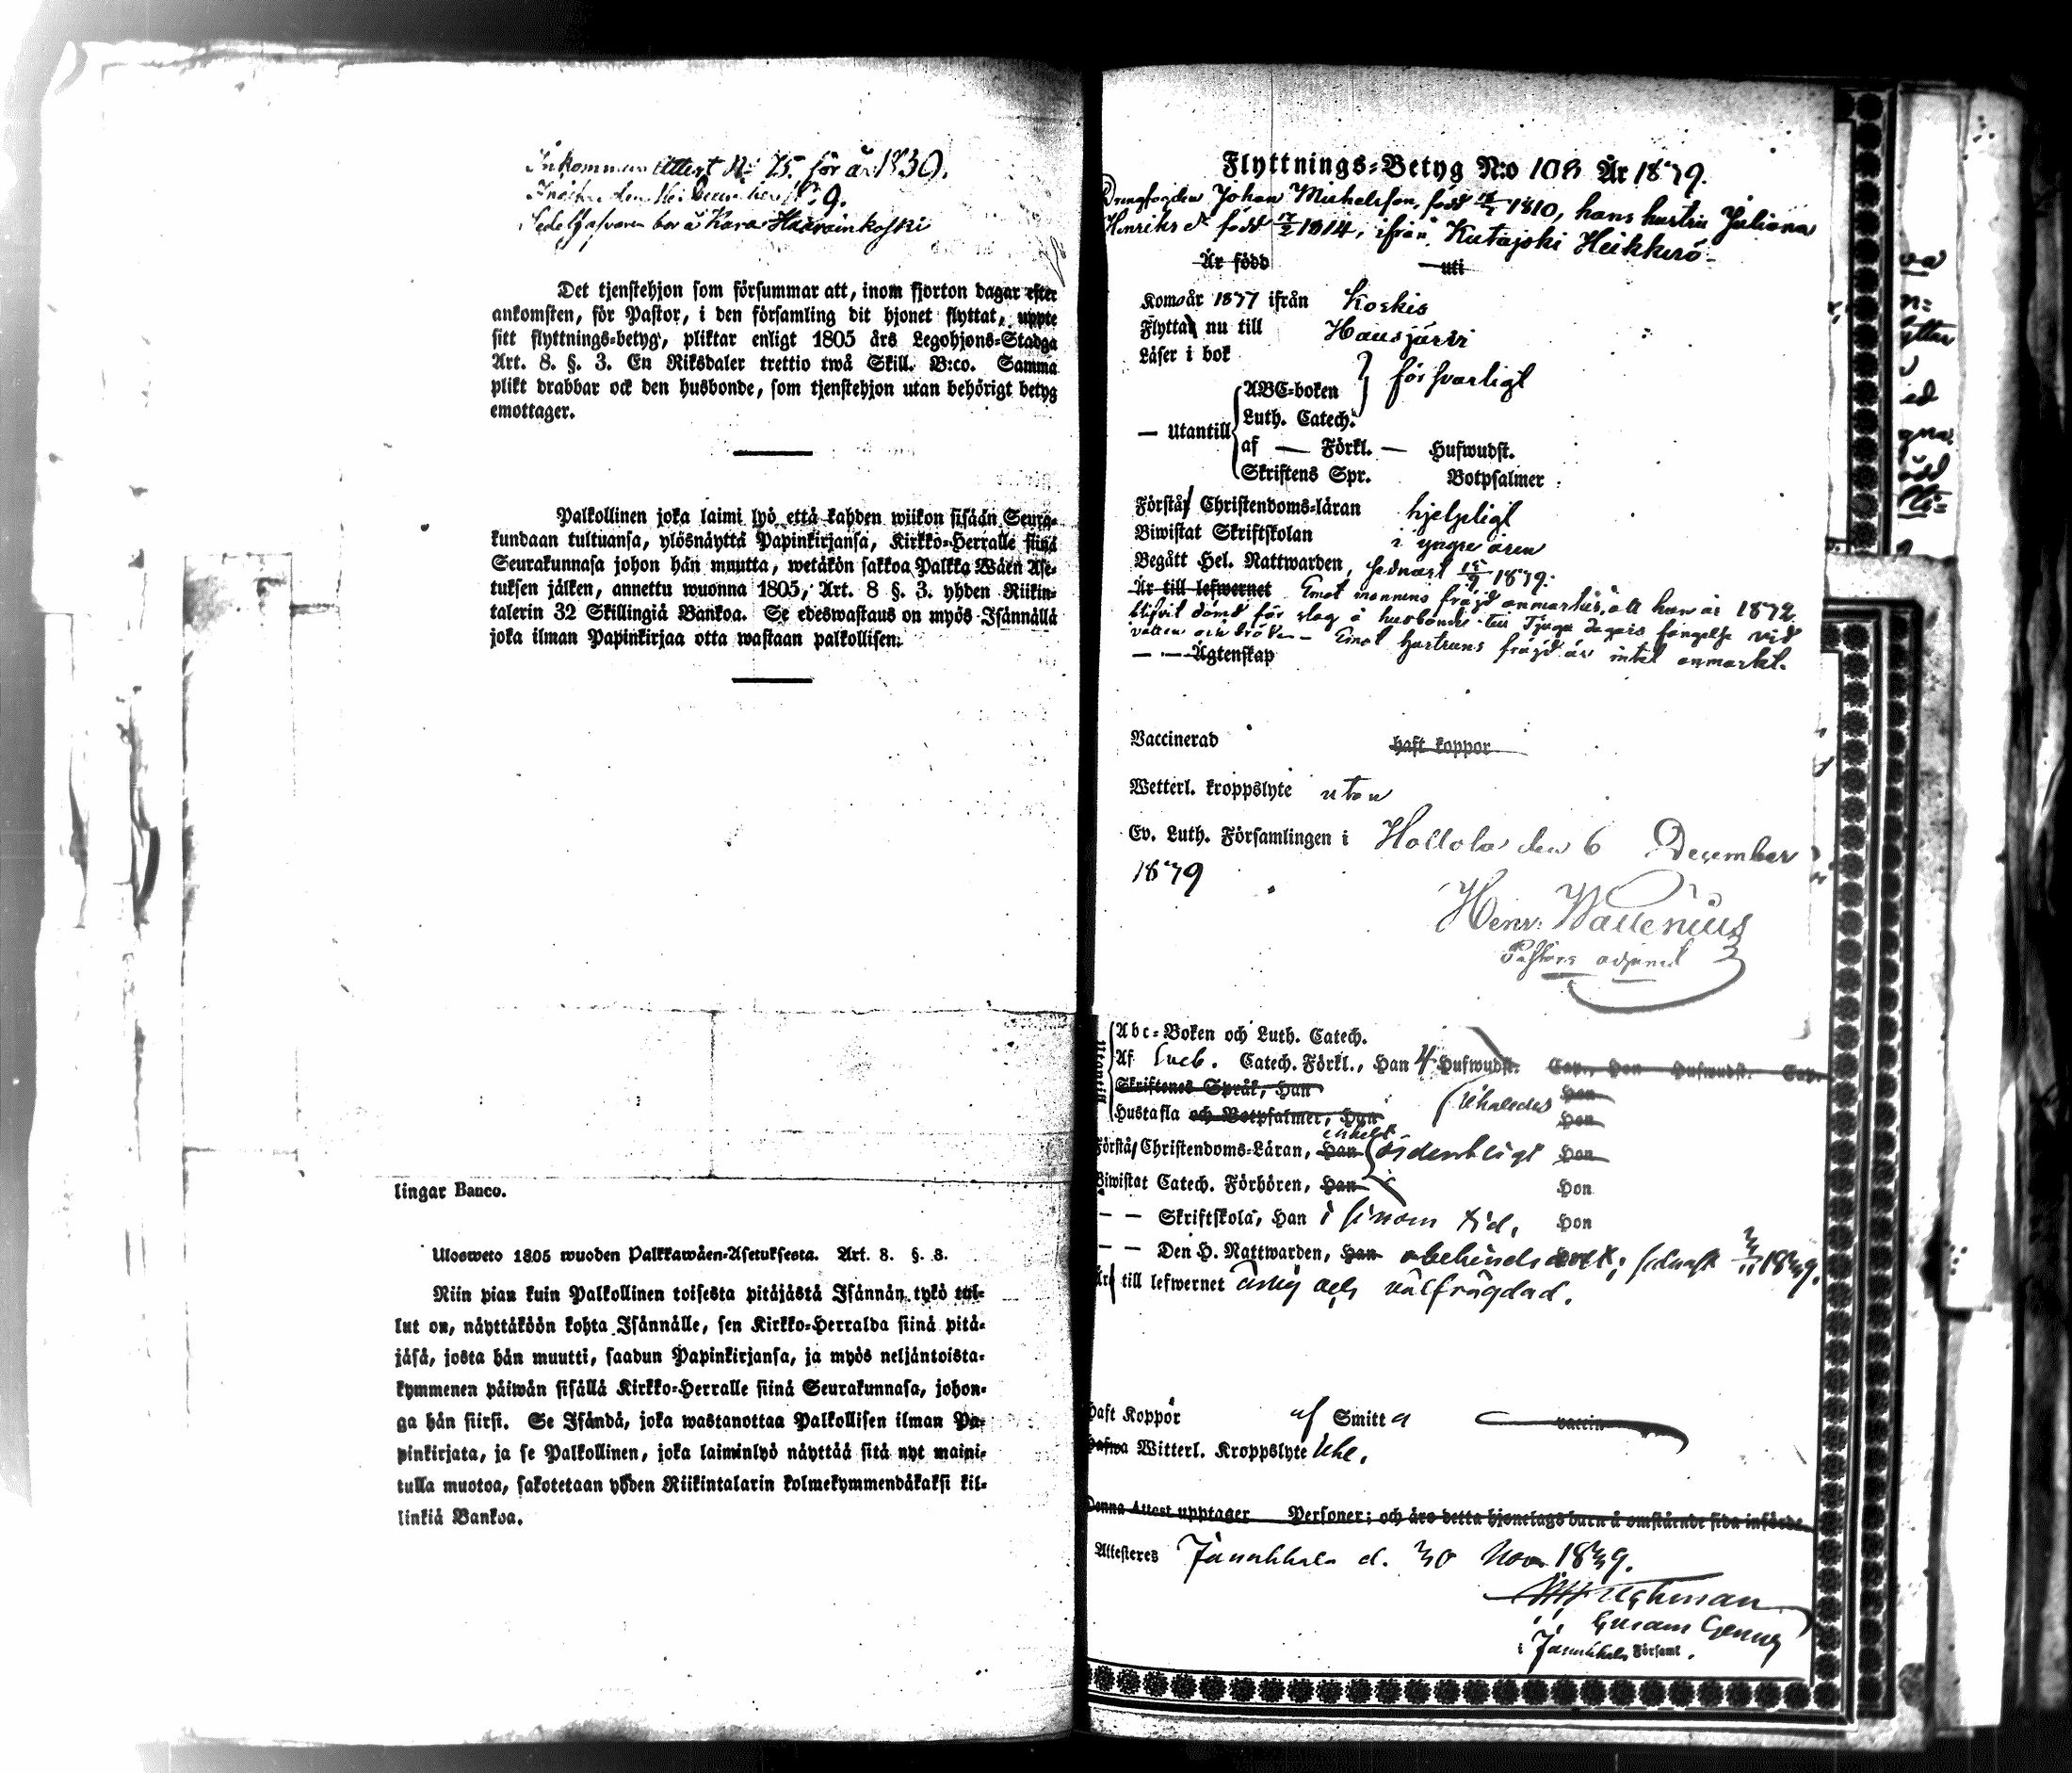 Inkommen Attest No 75. för år 1839.
den 16 December 9.
bor å Kara Haavainkoski
Det tjenstehjon som försummar att, inom fjorton dagar efter
ankomsten, för Pastor, i den församling dit hjonet flyttat, uppte
sitt flyttnings-betyg, pliktar enligt 1805 års Legohjons-Stadga
Art. 8. §. 3. En Riksdaler trettio twå Skill. B:co. Samma
plikt drabbar ock den husbonde, som tjenstehjon utan behörigt betyg
emottager.
Palkollinen joka laimi lyö että kahden wiikon sisään Seura-
kundaan tultuansa, ylösnäyttä Papinkirjansa, Kirkko-Herralle siinä
Seurakunnasa johon hän muutta, wetäkön sakkoa Palkka Wäen Ase-
tuksen jälken, annettu wuonna 1805, Art. 8 §. 3. yhden Riikin-
talerin 32 Skillingiä Bankoa. Se edeswastaus on myös Isännällä
joka ilman Papinkirjaa otta wastaan palkollisen.
lingar Banco.
Ulosweto 1805 wuoden Palkkawäen-Asetuksesta. Art. 8. §. 8.
Niin pian kuin Palkollinen toisesta pitäjästä Isännän tykö tul-
lut on, näyttäköön kohta Isännälle, sen Kirkko-Herralda siinä pitä-
jäsä, josta hän muutti, saadun Papinkirjansa, ja myös neljäntoista-
kymmenen päiwän sisällä Kirkko-Herralle siinä Seurakunnasa, johon-
ga hän siirsi. Se Isändä, joka wastanottaa Palkollisen ilman Pa-
pinkirjata, ja se Palkollinen, joka laiminlyö näyttää sitä nyt maini-
tulla muotoa, sakotetaan yhden Riikintalarin kolmekymmendäkaksi kil-
linkiä Bankoa.
Flyttnings-Betyg N:o 108 År 1839.
Drängkarlen Johan Michelsson, född 1810, hans hustru Juliana
Henriksdr född 1814, ifrån Kutajoki Heikkerö
Är född uti
Kom år 1837 ifrån Koskis
Flyttar nu till Hausjärvi
Läser i bok
ABC-boken } försvarligt
Luth. Catech.
— Utantill af — Förkl. — Hufwudst.
Skriftens Spr. Botpsalmer
Förstår Christendoms-läran hjelpligt
Biwistat Skriftskolan i yngre åren
Begått Hel. Nattwarden, sednast 15/9 1839.
Är till lefwernet Emot mannens frägd anmärkes, att han år 1832
blifvit dömd för slag å husbonde till Tjugu dagars fängelse vid
vatten och bröd. — Emot hustruns frägd är intet anmärkt.
— — Ägtenskap
Vaccinerad haft koppor
Wetterl. kroppslyte utan
Ev. Luth. Församlingen i Hollola den 6 December
1839
Henr. Wallenius
Pastors adjunct
Utantill
Abc-Boken och Luth. Catech.
Af Catech. Förkl., Han 4 Hufwudst. Cap., Hon Hufwudst. Cap.
Skriftenes Språk, Han Hon
Hustafla och Botpsalmer, Han Hon
enkelt
Förstå Christendoms-Läran, Han ordentligt Hon
Biwistat Catech. Förhören, Han Hon
— — Skriftskola, Han i sinom tid, Hon
— — Den H. Nattwarden, Han obehindradt; sednast 3/11 1839.
Äro till lefwernet ärlig och välfrägdad.
Haft Koppor af Smitta vaccin
Hafwa Witterl. Kroppslyte Uke.
Denna Attest upptager Personer; och äro detta hjonelags barn å omstående sida införde.
Attesteres Janakkala d. 30 Nov 1839.
i Janakkala Församl.